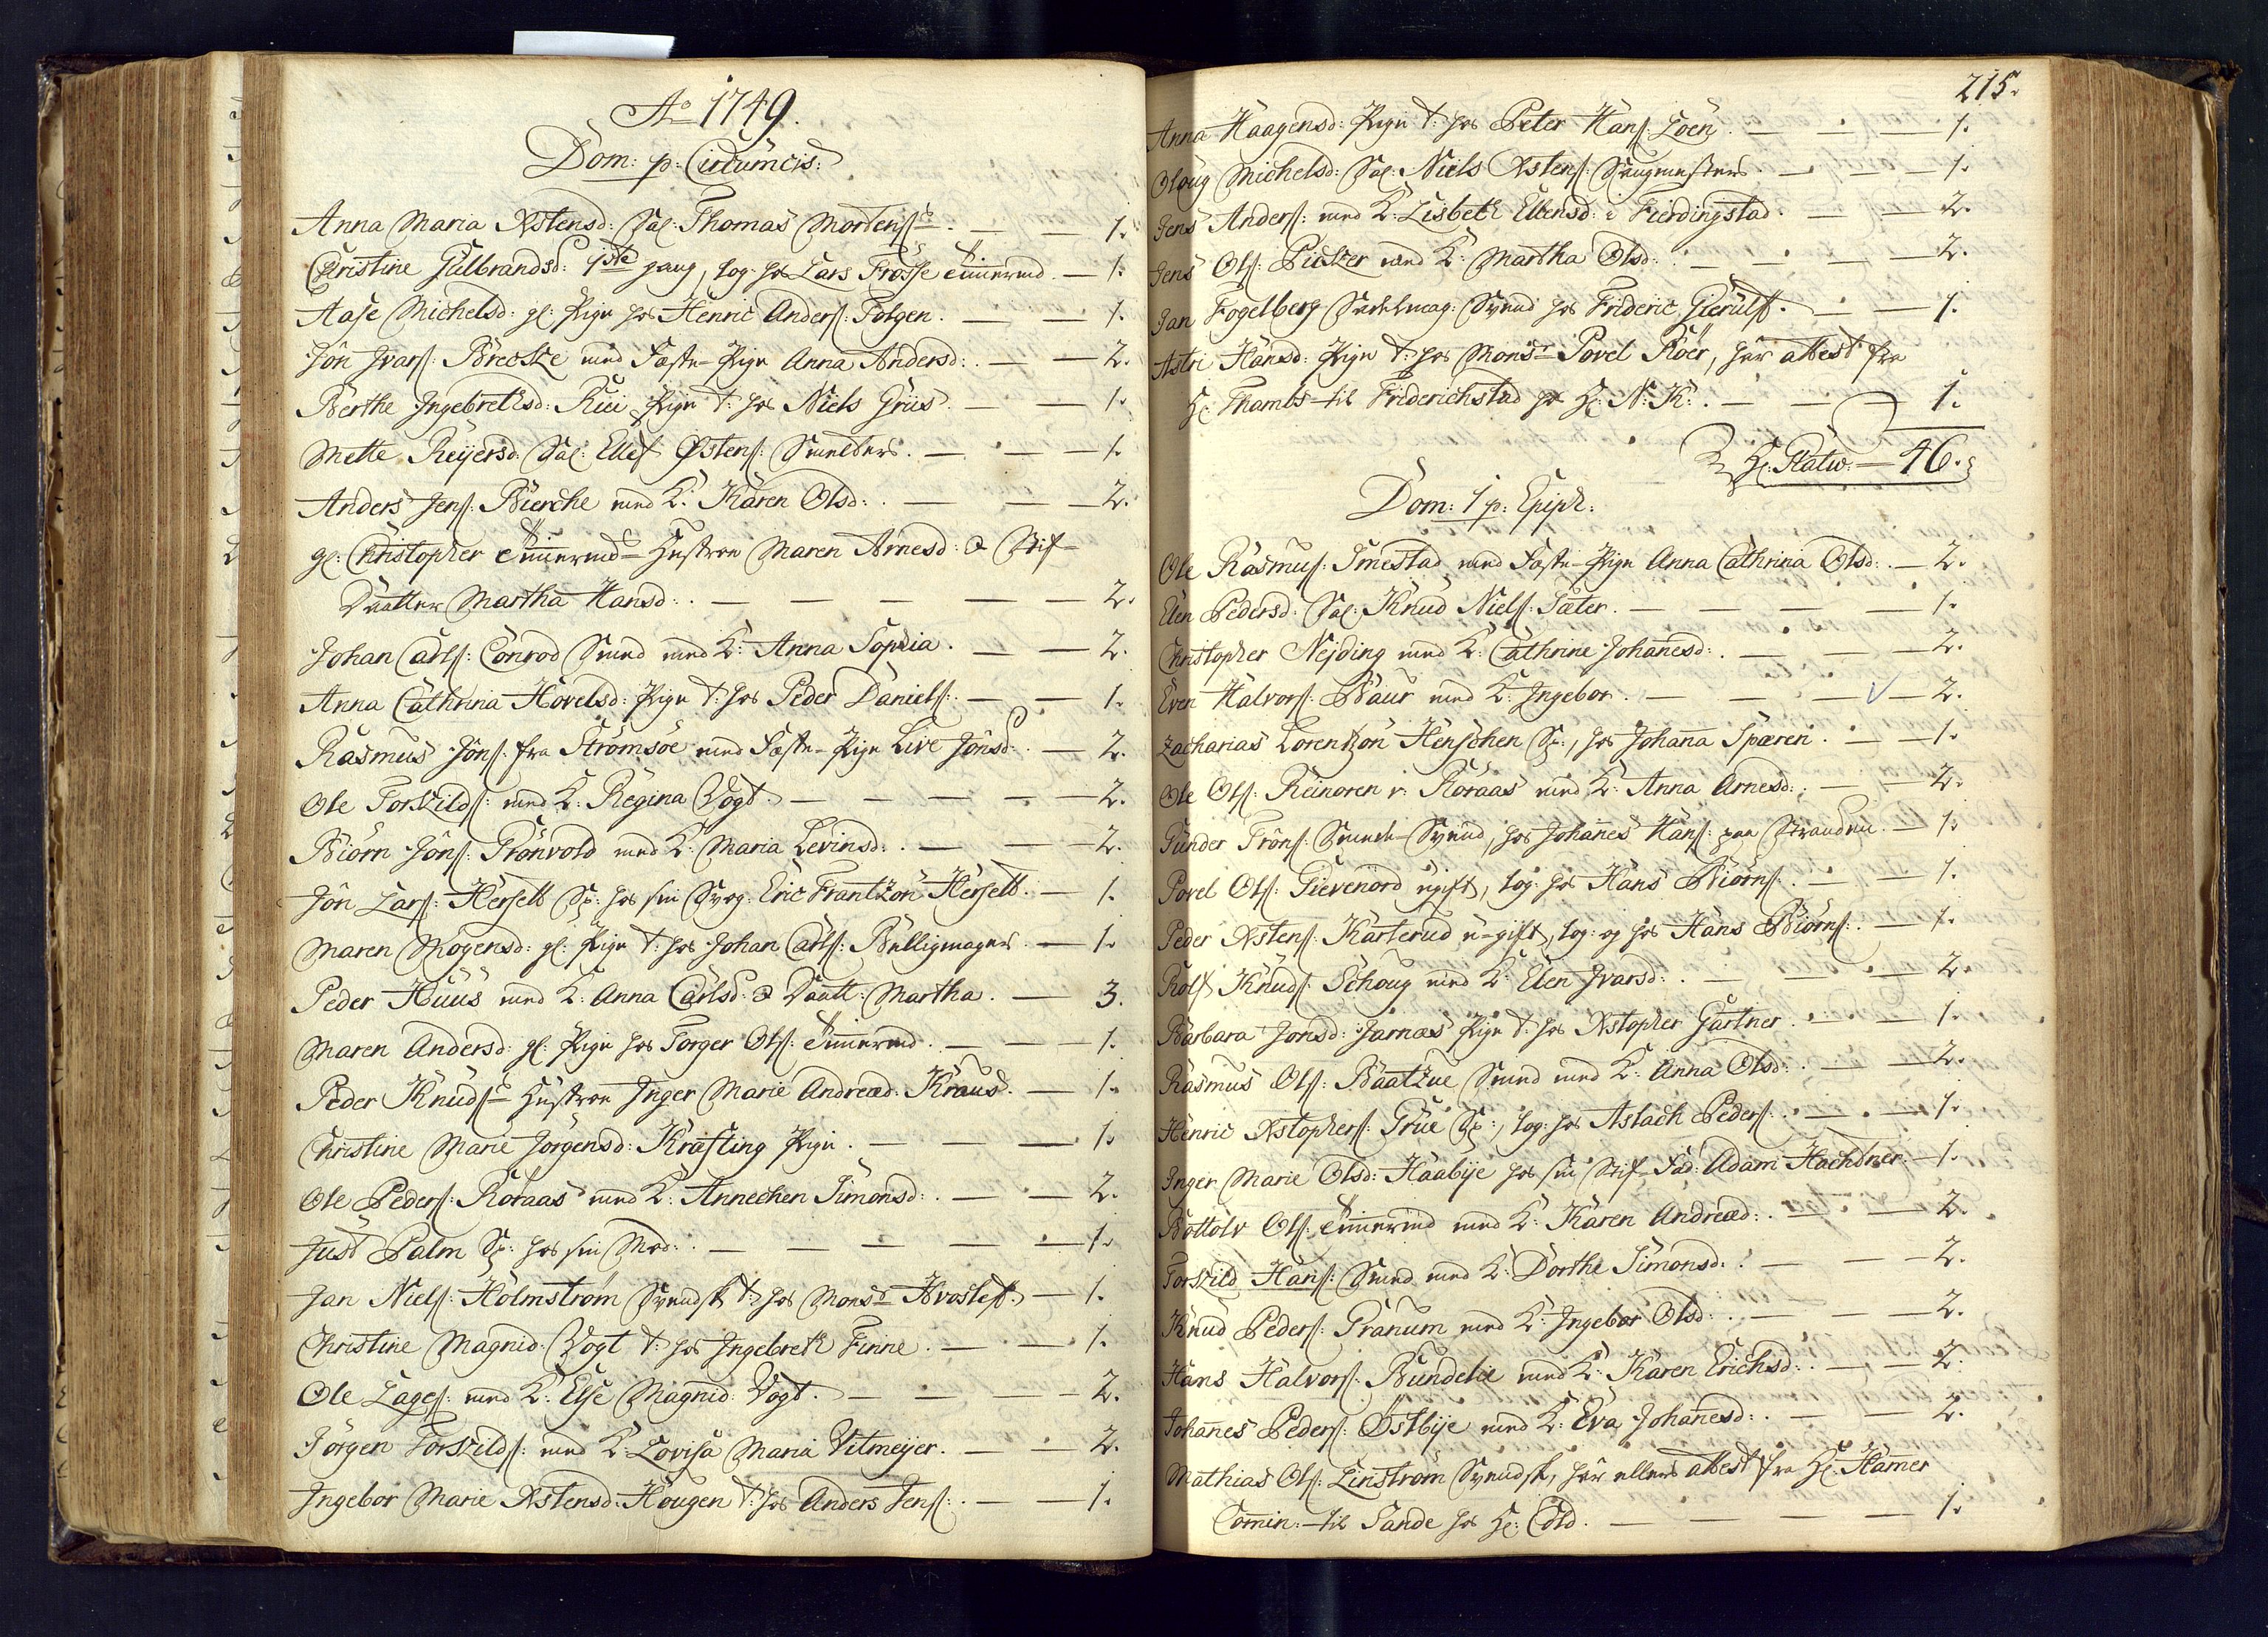 Ao 1749.
Dom: p: Circumcis:
Anna Maria Xstensd: Sal: Thomas Mortens: — — 1.
Christine Gulbrandsd: 1ste gang, log: hos Lars Frosse Timmermd — 1.
Aase Michelsd: gl: Pige hos Henric Anders: Folgen. — — 1.
Jôn Jvars: Brecke med Fæste-Pige Anna Andersd: — — 2.
Berthe Ingebrethsd: Pige t: hos Niels Griis. — — 1.
Mette Reyersd: Sal: Ellef Østens: Smelters. — — 1.
Anders Jens: Bierche med K: Karen Olsd: — — 2.
gl: Christopher Timmermds Hustroe Maren Arnesd: & Stif-
Daatter Martha Hansd: — — — — 2.
Johan Carls: Conrod Smed med K: Anna Sophia. — — 2.
Anna Cathrina Hovelsd: Pige t: hos Peder Daniels: — — 1.
Rasmus Jöns: fra Strömsöe med Fæste-Pige Live Jönsd: — 2.
Ole Torkilds: med K: Regina Vogt. — — — 2.
Biörn Jöns: Grönvold med K: Maria Levinsd: — — 2.
Jön Lars: Herseth Sp: hos sin Svog: Eric Frantzön Herseth. — 1.
Maren Mogensd: gl: Pige t: hos Johan Carls: Belligmagers. — 1.
Peder Huus med K: Anna Carlsd: & Daatt: Martha. — 3.
Maren Andersd: gl: Pige hos Torger Ols: Timmermd. — — 1.
Peder Knuds: Hustroe Inger Marie Andreæd: Kraus. — 1.
Christine Marie Jörgensd: Kræfting Pige. — — — 1.
Ole Peders: Röraas med K: Annechen Simonsd: — — 2.
Just Palm Sp: hos sin Mod: — — — — 1.
Jan Niels: Holmström Svendsk t: hos Monsr Hvoslef. — 1.
Christine Magnid: Vogt t: hos Ingebreth Finne. — — 1.
Ole Lages: med K: Else Magnid: Vogt. — — — 2.
Jörgen Torkilds: med K: Lovisa Maria Vitmeyer. — — 2.
Ingebor Marie Xstensd: Hougen t: hos Anders Jens: — — 1.
215.
Anna Haagensd: Pige t: hos Peter Hans: Löen. — — 1.
Oloug Michelsd: Sal: Niels Xstens: Saugmesters. — — 1.
Jens Anders: med K: Lisbeth Ellensd: i Fierdingstad. — — 2.
Jens Ols: med K: Martha Olsd: — — — 2.
Jan Fogelberg Sadelmag: Svend hos Frideric Gierulff. — — 1.
Astri Hansd: Pige t: hos Monsr Povel Röer, har attest fra
Hr: Thambs til Friderichstad hos Hr: N: K: — — 1.
Hr: — 46.
Dom: 1 p: Epiph:
Ole Rasmus: Smestad med Fæste-Pige Anna Cathrina Olsd: — 2.
Elen Pedersd: Sal: Knud Niels: Sæter. — — — 1.
Christopher Nejding med K: Cathrine Johanesd: — — 2.
Even Halvors: Baur med K: Ingebor. — — — 2.
Zacharias Lorentzön Henschen Sp:, hos Johana Spæren. — — 1.
Ole Ols: Reinoren v: Röraas med K: Anna Arnesd: — — 2.
Gunder Tröns: Smede-Svend, hos Johanes Hans: paa Stranden. — 1.
Povel Ols: Gievenord ugift, log: hos Hans Biörns: — — 1.
Peder Xstens: Karterud u-gift, log: og hos Hans Biörns: — 1.
Rolf Knuds: Schoug med K: Elen Jvarsd: — — — 2.
Barbara Jonsd: Jarnæs Pige t: hos Xstopher Gartner. — — 1.
Rasmus Ols: Baatzue Smed med K: Anna Olsd: — — 2.
Henric Xstophers: Grue Sp:, log: hos Aslach Peders: — — 1.
Inger Marie Olsd: Haabije hos sin Stif-Fad: Adam Hachtner. — 1.
Bottolv Ols: Timmermd med K: Karen Andreæd: — — 2.
Torkild Hans: Smed med K: Dorthe Simonsd: — — 2.
Knud Peders: Granum med K: Ingebor Olsd: — — 2.
Hans Halvors: Bundelie med K: Karen Erichsd: — — 2.
Johanes Peders: Østbije med K: Eva Johanesd: — — 2.
Mathias Ols: Linström Svendsk, har ellers attest fra Hr: Hamer
Comin: til Sande hos Hr: Cold. — — — — 1.